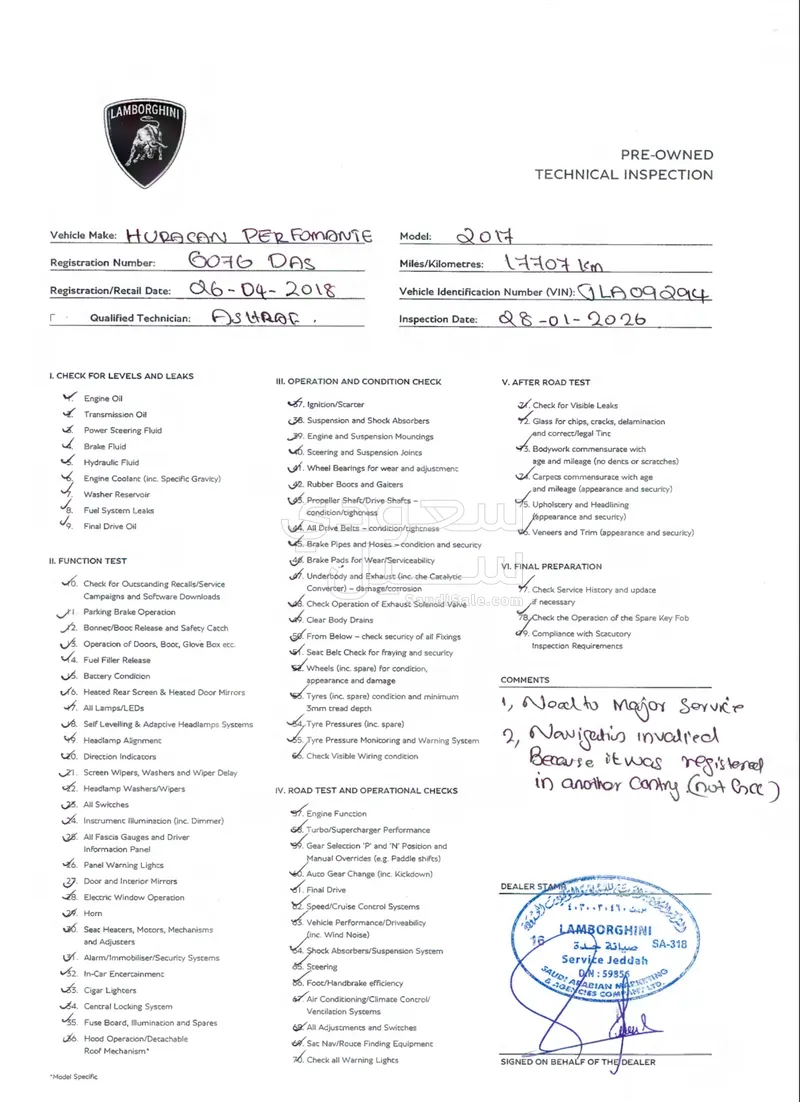 LAMBORGHINI
PRE-OWNED
TECHNICAL INSPECTION
Vehicle Make: HURACAN PERFOMANTE
Model: 2017
Registration Number: 6076 DAS
Miles/Kilometres: 17707 km
Registration/Retail Date: 26-04-2018
Vehicle Identification Number (VIN): JLA09294
Qualified Technician: ASHRAF.
Inspection Date: 28-01-2026
I. CHECK FOR LEVELS AND LEAKS
1. Engine Oil
2. Transmission Oil
3. Power Steering Fluid
4. Brake Fluid
5. Hydraulic Fluid
6. Engine Coolant (inc. Specific Gravity)
7. Washer Reservoir
8. Fuel System Leaks
9. Final Drive Oil
II. FUNCTION TEST
10. Check for Outstanding Recalls/Service
Campaigns and Software Downloads
11. Parking Brake Operation
12. Bonnet/Boot Release and Safety Catch
13. Operation of Doors, Boot, Glove Box etc.
14. Fuel Filler Release
15. Battery Condition
16. Heated Rear Screen & Heated Door Mirrors
17. All Lamps/LEDs
18. Self Levelling & Adaptive Headlamps Systems
19. Headlamp Alignment
20. Direction Indicators
21. Screen Wipers, Washers and Wiper Delay
22. Headlamp Washers/Wipers
23. All Switches
24. Instrument Illumination (inc. Dimmer)
25. All Fascia Gauges and Driver
Information Panel
26. Panel Warning Lights
27. Door and Interior Mirrors
28. Electric Window Operation
29. Horn
30. Seat Heaters, Motors, Mechanisms
and Adjusters
31. Alarm/Immobiliser/Security Systems
32. In-Car Entertainment
33. Cigar Lighters
34. Central Locking System
35. Fuse Board, Illumination and Spares
36. Hood Operation/Detachable
Roof Mechanism*
*Model Specific
III. OPERATION AND CONDITION CHECK
37. Ignition/Starter
38. Suspension and Shock Absorbers
39. Engine and Suspension Mountings
40. Steering and Suspension Joints
41. Wheel Bearings for wear and adjustment
42. Rubber Boots and Gaiters
43. Propeller Shaft/Drive Shafts –
condition/tightness
44. All Drive Belts – condition/tightness
45. Brake Pipes and Hoses – condition and security
46. Brake Pads for Wear/Serviceability
47. Underbody and Exhaust (inc. the Catalytic
Converter) – damage/corrosion
48. Check Operation of Exhaust Solenoid Valve
49. Clear Body Drains
50. From Below – check security of all Fixings
51. Seat Belt Check for fraying and security
52. Wheels (inc. spare) for condition,
appearance and damage
53. Tyres (inc. spare) condition and minimum
3mm tread depth
54. Tyre Pressures (inc. spare)
55. Tyre Pressure Monitoring and Warning System
56. Check Visible Wiring condition
IV. ROAD TEST AND OPERATIONAL CHECKS
57. Engine Function
58. Turbo/Supercharger Performance
59. Gear Selection 'P' and 'N' Position and
Manual Overrides (e.g. Paddle shifts)
60. Auto Gear Change (inc. Kickdown)
61. Final Drive
62. Speed/Cruise Control Systems
63. Vehicle Performance/Driveability
(inc. Wind Noise)
64. Shock Absorbers/Suspension System
65. Steering
66. Foot/Handbrake efficiency
67. Air Conditioning/Climate Control/
Ventilation Systems
68. All Adjustments and Switches
69. Sat Nav/Route Finding Equipment
70. Check all Warning Lights
V. AFTER ROAD TEST
71. Check for Visible Leaks
72. Glass for chips, cracks, delamination
and correct/legal Tint
73. Bodywork commensurate with
age and mileage (no dents or scratches)
74. Carpets commensurate with age
and mileage (appearance and security)
75. Upholstery and Headlining
(appearance and security)
76. Veneers and Trim (appearance and security)
VI. FINAL PREPARATION
77. Check Service History and update
if necessary
78. Check the Operation of the Spare Key Fob
79. Compliance with Statutory
Inspection Requirements
COMMENTS
1, Need to Major Service
2, Navigation invalied
Because it was registered
in another Contry (not GCC)
DEALER STAMP
LAMBORGHINI
16 صيانة جدة SA-318
Service Jeddah
D/N : 59856
SAUDI ARABIAN MARKETING
& AGENCIES COMPANY LTD.
SIGNED ON BEHALF OF THE DEALER
سعودي سيل
SaudiSale.com